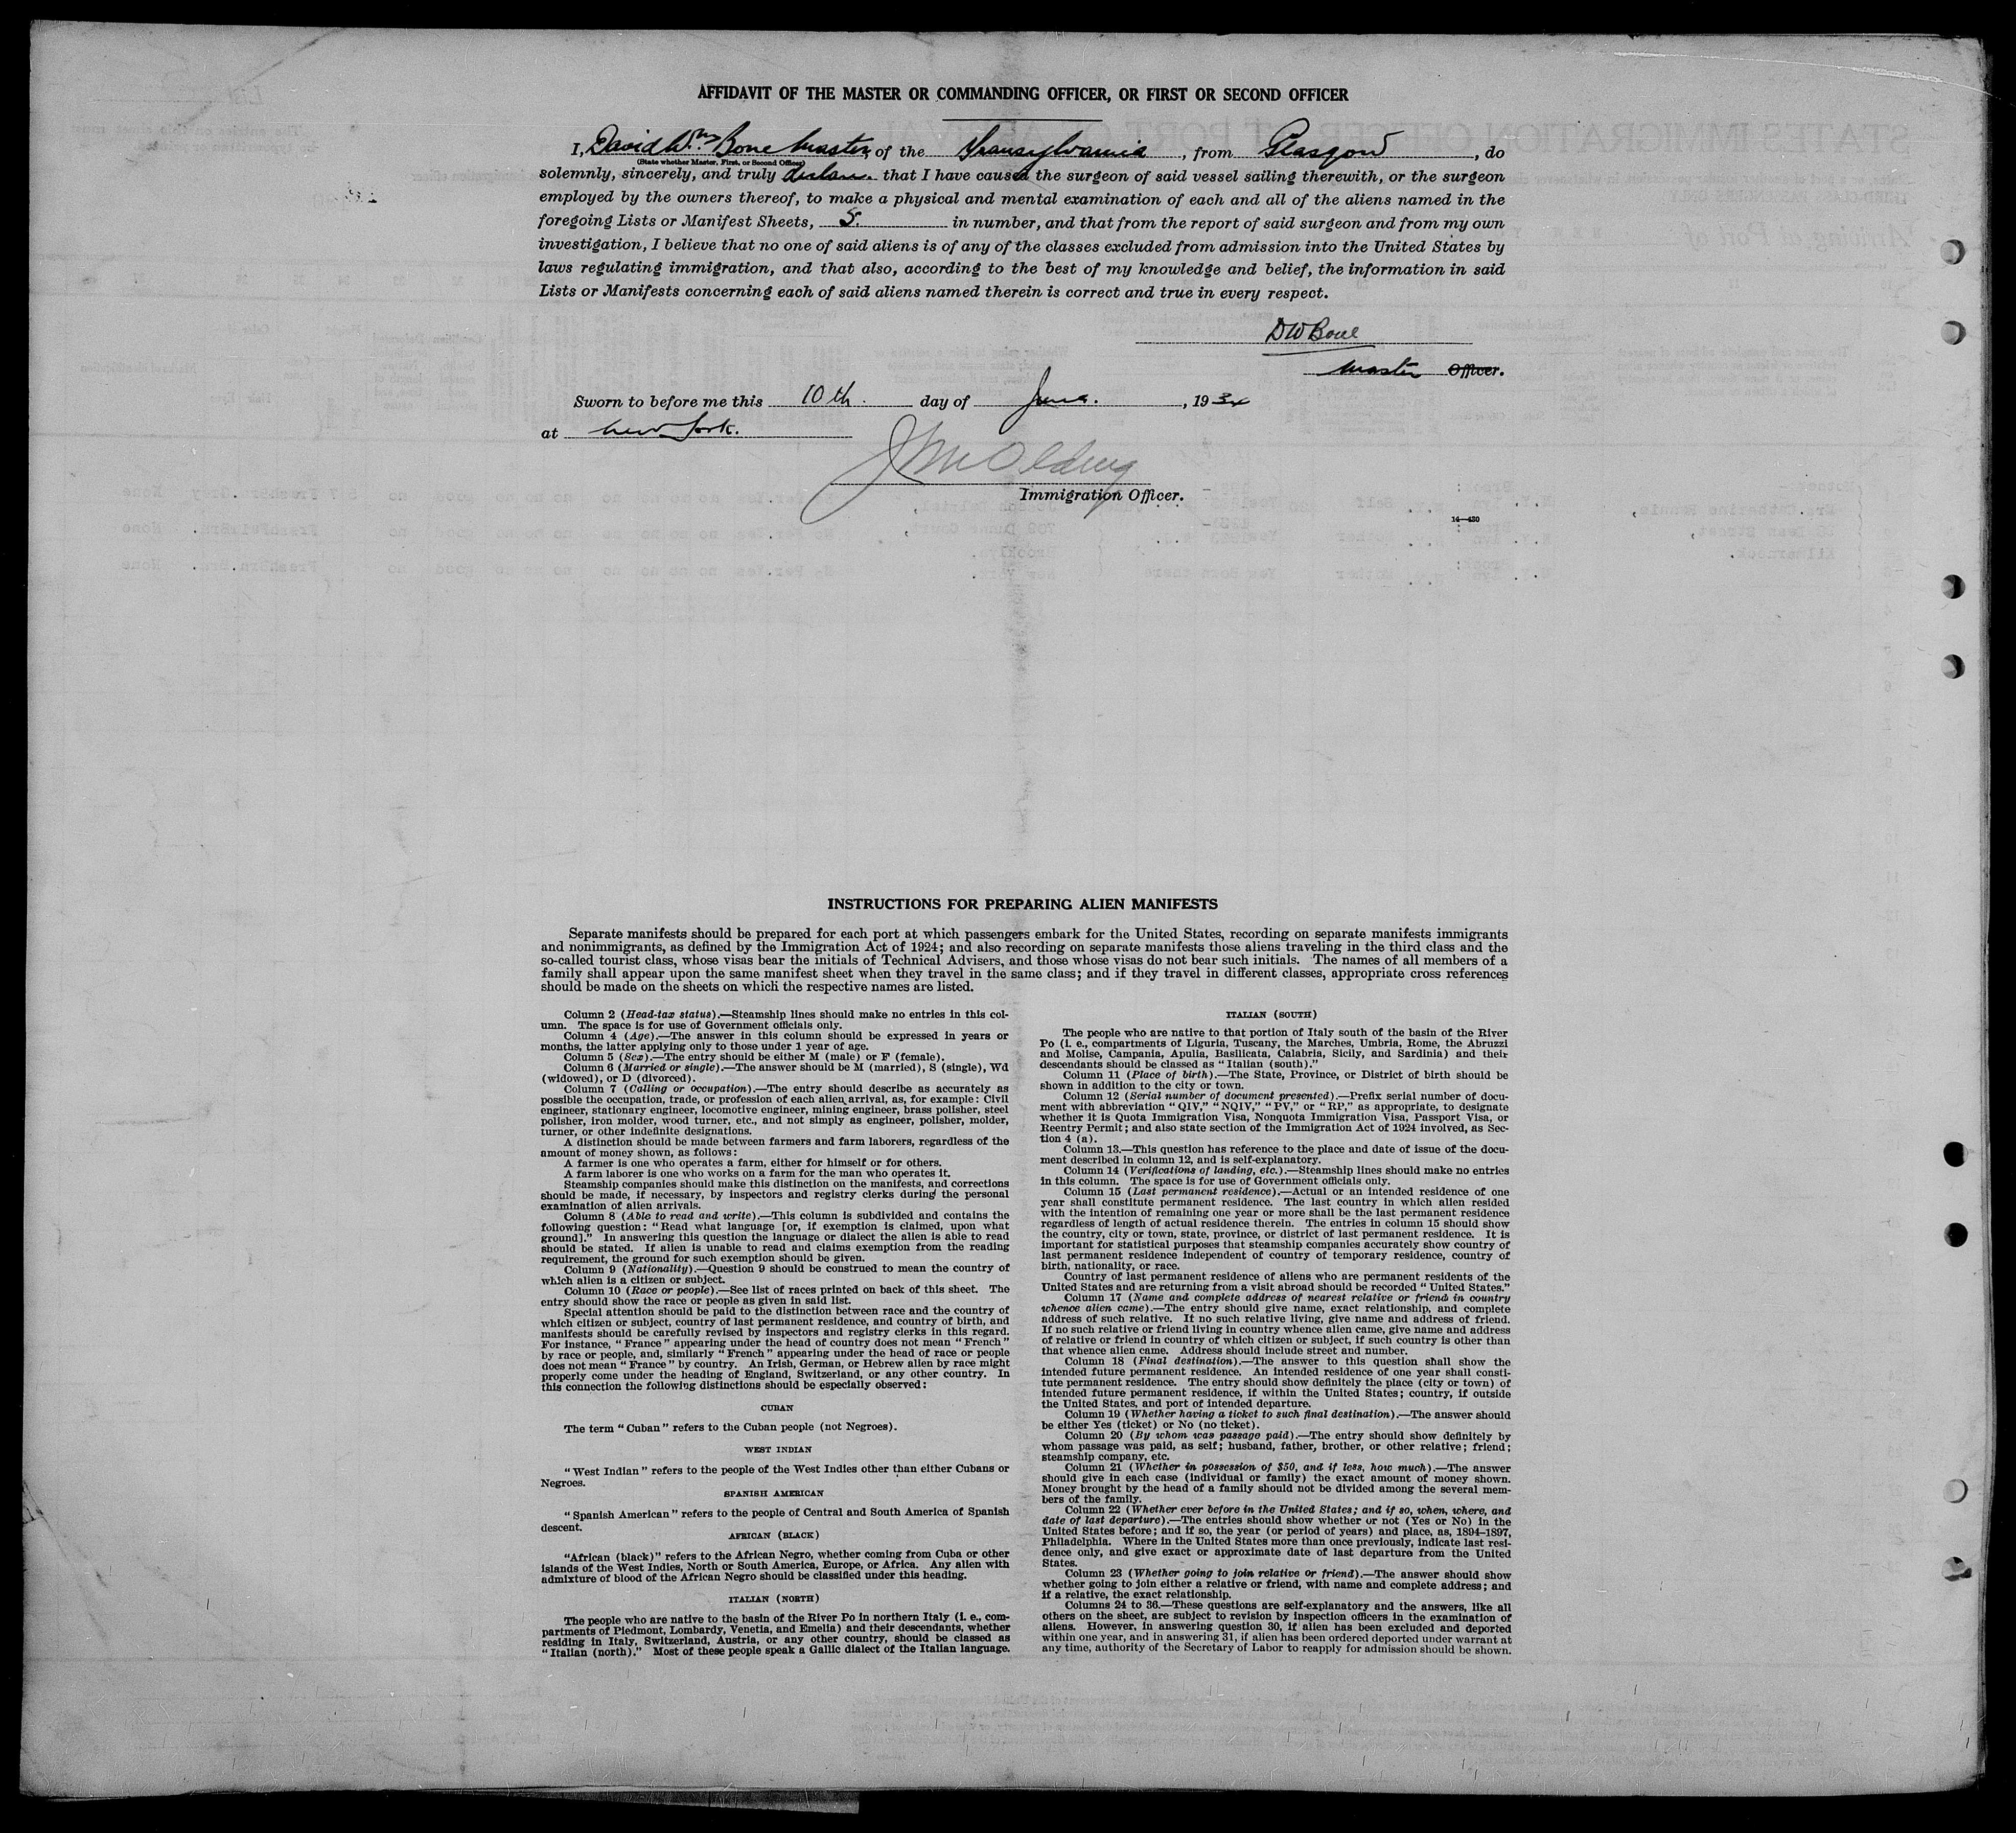 AFFIDAVIT OF THE MASTER OR COMMANDING OFFICER, OR FIRST OR SECOND OFFICER
I, David Wm Bone Master, of the Transylvania, from Glasgow, do
(State whether Master, First, or Second Officer)
solemnly, sincerely, and truly declare that I have caused the surgeon of said vessel sailing therewith, or the surgeon
employed by the owners thereof, to make a physical and mental examination of each and all of the aliens named in the
foregoing Lists or Manifest Sheets, 5. in number, and that from the report of said surgeon and from my own
investigation, I believe that no one of said aliens is of any of the classes excluded from admission into the United States by
laws regulating immigration, and that also, according to the best of my knowledge and belief, the information in said
Lists or Manifests concerning each of said aliens named therein is correct and true in every respect.
DW Bone
Master Officer.
Sworn to before me this 10th. day of June., 193
at New York.
Immigration Officer.
14—430
INSTRUCTIONS FOR PREPARING ALIEN MANIFESTS
Separate manifests should be prepared for each port at which passengers embark for the United States, recording on separate manifests immigrants
and nonimmigrants, as defined by the Immigration Act of 1924; and also recording on separate manifests those aliens traveling in the third class and the
so-called tourist class, whose visas bear the initials of Technical Advisers, and those whose visas do not bear such initials. The names of all members of a
family shall appear upon the same manifest sheet when they travel in the same class; and if they travel in different classes, appropriate cross references
should be made on the sheets on which the respective names are listed.
Column 2 (Head-tax status).—Steamship lines should make no entries in this col-
umn. The space is for use of Government officials only.
Column 4 (Age).—The answer in this column should be expressed in years or
months, the latter applying only to those under 1 year of age.
Column 5 (Sex).—The entry should be either M (male) or F (female).
Column 6 (Married or single).—The answer should be M (married), S (single), Wd
(widowed), or D (divorced).
Column 7 (Calling or occupation).—The entry should describe as accurately as
possible the occupation, trade, or profession of each alien arrival, as, for example: Civil
engineer, stationary engineer, locomotive engineer, mining engineer, brass polisher, steel
polisher, iron molder, wood turner, etc., and not simply as engineer, polisher, molder,
turner, or other indefinite designations.
A distinction should be made between farmers and farm laborers, regardless of the
amount of money shown, as follows:
A farmer is one who operates a farm, either for himself or for others.
A farm laborer is one who works on a farm for the man who operates it.
Steamship companies should make this distinction on the manifests, and corrections
should be made, if necessary, by inspectors and registry clerks during the personal
examination of alien arrivals.
Column 8 (Able to read and write).—This column is subdivided and contains the
following question: "Read what language [or, if exemption is claimed, upon what
ground]." In answering this question the language or dialect the alien is able to read
should be stated. If alien is unable to read and claims exemption from the reading
requirement, the ground for such exemption should be given.
Column 9 (Nationality).—Question 9 should be construed to mean the country of
which alien is a citizen or subject.
Column 10 (Race or people).—See list of races printed on back of this sheet. The
entry should show the race or people as given in said list.
Special attention should be paid to the distinction between race and the country of
which citizen or subject, country of last permanent residence, and country of birth, and
manifests should be carefully revised by inspectors and registry clerks in this regard.
For instance, "France" appearing under the head of country does not mean "French"
by race or people, and, similarly "French" appearing under the head of race or people
does not mean "France" by country. An Irish, German, or Hebrew alien by race might
properly come under the heading of England, Switzerland, or any other country. In
this connection the following distinctions should be especially observed:
CUBAN
The term "Cuban" refers to the Cuban people (not Negroes).
WEST INDIAN
"West Indian" refers to the people of the West Indies other than either Cubans or
Negroes.
SPANISH AMERICAN
"Spanish American" refers to the people of Central and South America of Spanish
descent.
AFRICAN (BLACK)
"African (black)" refers to the African Negro, whether coming from Cuba or other
islands of the West Indies, North or South America, Europe, or Africa. Any alien with
admixture of blood of the African Negro should be classified under this heading.
ITALIAN (NORTH)
The people who are native to the basin of the River Po in northern Italy (i. e., com-
partments of Piedmont, Lombardy, Venetia, and Emelia) and their descendants, whether
residing in Italy, Switzerland, Austria, or any other country, should be classed as
"Italian (north)." Most of these people speak a Gallic dialect of the Italian language.
ITALIAN (SOUTH)
The people who are native to that portion of Italy south of the basin of the River
Po (i. e., compartments of Liguria, Tuscany, the Marches, Umbria, Rome, the Abruzzi
and Molise, Campania, Apulia, Basilicata, Calabria, Sicily, and Sardinia) and their
descendants should be classed as "Italian (south)."
Column 11 (Place of birth).—The State, Province, or District of birth should be
shown in addition to the city or town.
Column 12 (Serial number of document presented).—Prefix serial number of docu-
ment with abbreviation "QIV," "NQIV," "PV," or "RP," as appropriate, to designate
whether it is Quota Immigration Visa, Nonquota Immigration Visa, Passport Visa, or
Reentry Permit; and also state section of the Immigration Act of 1924 involved, as Sec-
tion 4 (a).
Column 13.—This question has reference to the place and date of issue of the docu-
ment described in column 12, and is self-explanatory.
Column 14 (Verifications of landing, etc.).—Steamship lines should make no entries
in this column. The space is for use of Government officials only.
Column 15 (Last permanent residence).—Actual or an intended residence of one
year shall constitute permanent residence. The last country in which alien resided
with the intention of remaining one year or more shall be the last permanent residence
regardless of length of actual residence therein. The entries in column 15 should show
the country, city or town, state, province, or district of last permanent residence. It is
important for statistical purposes that steamship companies accurately show country of
last permanent residence independent of country of temporary residence, country of
birth, nationality, or race.
Country of last permanent residence of aliens who are permanent residents of the
United States and are returning from a visit abroad should be recorded "United States."
Column 17 (Name and complete address of nearest relative or friend in country
whence alien came).—The entry should give name, exact relationship, and complete
address of such relative. If no such relative living, give name and address of friend.
If no such relative or friend living in country whence alien came, give name and address
of relative or friend in country of which citizen or subject, if such country is other than
that whence alien came. Address should include street and number.
Column 18 (Final destination).—The answer to this question shall show the
intended future permanent residence. An intended residence of one year shall consti-
tute permanent residence. The entry should show definitely the place (city or town) of
intended future permanent residence, if within the United States; country, if outside
the United States, and port of intended departure.
Column 19 (Whether having a ticket to such final destination).—The answer should
be either Yes (ticket) or No (no ticket).
Column 20 (By whom was passage paid).—The entry should show definitely by
whom passage was paid, as self; husband, father, brother, or other relative; friend;
steamship company, etc.
Column 21 (Whether in possession of $50, and if less, how much).—The answer
should give in each case (individual or family) the exact amount of money shown.
Money brought by the head of a family should not be divided among the several mem-
bers of the family.
Column 22 (Whether ever before in the United States; and if so, when, where, and
date of last departure).—The entries should show whether or not (Yes or No) in the
United States before; and if so, the year (or period of years) and place, as, 1894–1897,
Philadelphia. Where in the United States more than once previously, indicate last resi-
dence only, and give exact or approximate date of last departure from the United
States.
Column 23 (Whether going to join relative or friend).—The answer should show
whether going to join either a relative or friend, with name and complete address; and
if a relative, the exact relationship.
Columns 24 to 36.—These questions are self-explanatory and the answers, like all
others on the sheet, are subject to revision by inspection officers in the examination of
aliens. However, in answering question 30, if alien has been excluded and deported
within one year, and in answering 31, if alien has been ordered deported under warrant at
any time, authority of the Secretary of Labor to reapply for admission should be shown.